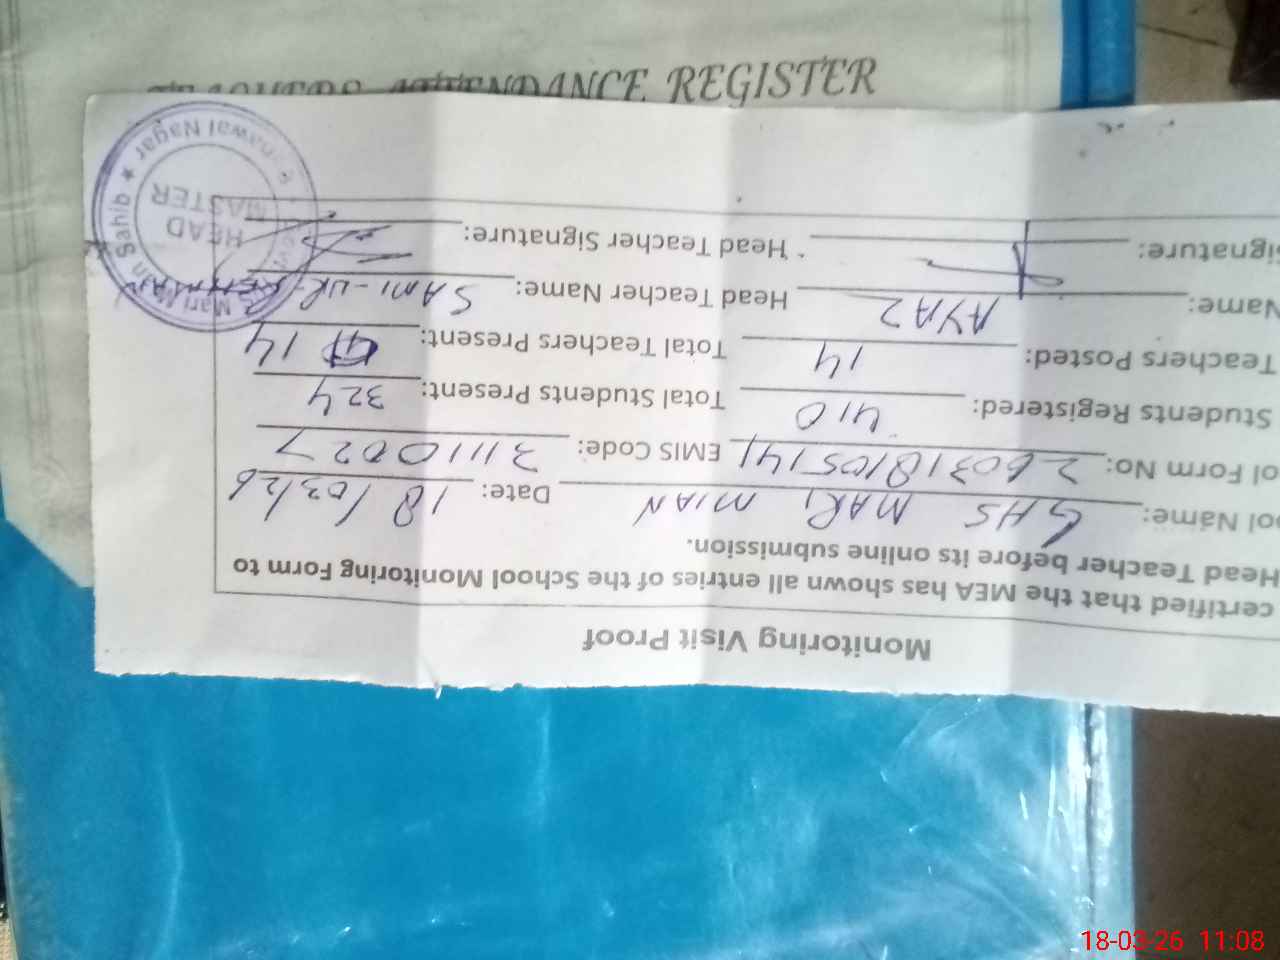 TEACHERS ATTENDANCE REGISTER
Monitoring Visit Proof
certified that the MEA has shown all entries of the School Monitoring Form to
Head Teacher before its online submission.
ool Name: GHS MARI MIAN Date: 18/03/26
ol Form No: 260318105141 EMIS Code: 31110027
Students Registered: 410 Total Students Present: 324
Teachers Posted: 14 Total Teachers Present: 14
Name: AYAZ Head Teacher Name: SAMI-UR-REHMAN
Signature: Head Teacher Signature:
HEAD
MASTER
Mari Mian Sahib ★ nawal Nagar
18-03-26 11:08